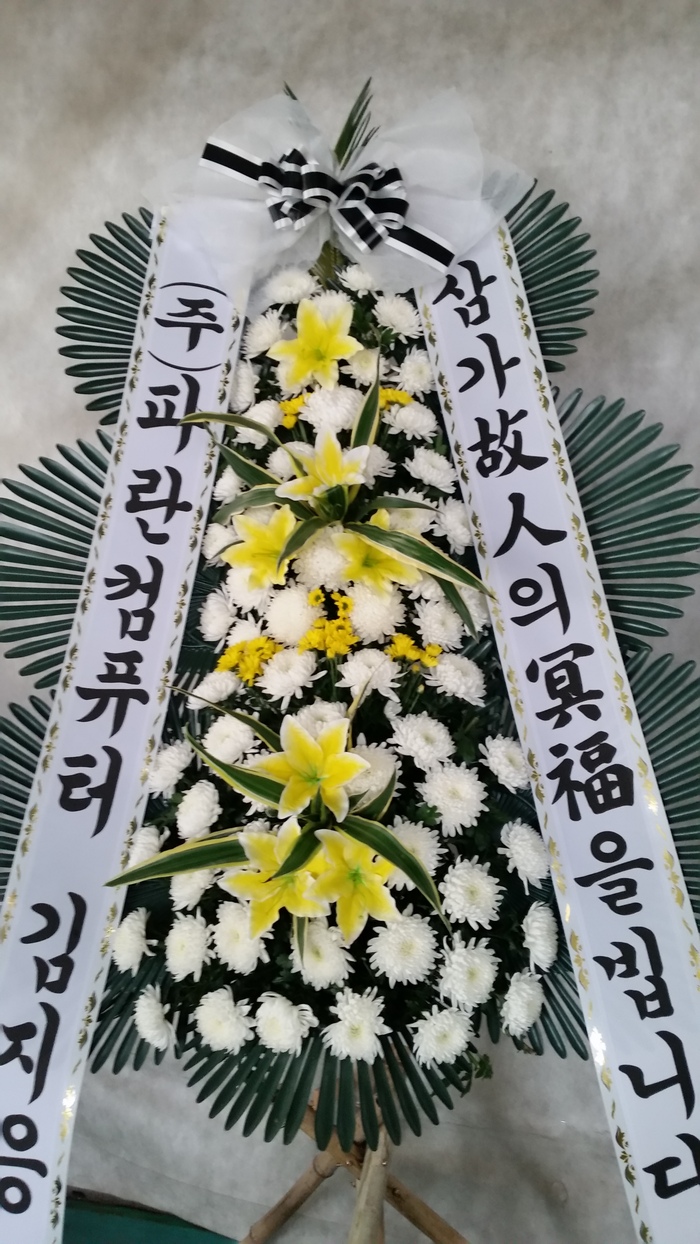 (주)파란컴퓨터 김지응
삼가故人의冥福을빕니다